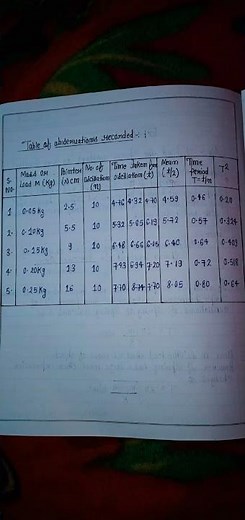 Table of observations recorded:-
S. No. Mass or load M (Kg) Pointer (x) cm No of oscillation (n) Time taken for oscillation (t) Mean (t/2) Time period T=t/n T²
1 0.05 Kg 2.5 10 4.76 4.32 4.70 4.59 0.46 0.20
2. 0.10 Kg 5.5 10 5.32 5.65 6.19 5.72 0.57 0.324
3. 0.15 Kg 9 10 6.48 6.66 6.05 6.40 0.64 0.409
4. 0.20 Kg 13 10 7.43 6.94 7.20 7.19 0.72 0.518
5. 0.25 Kg 16 10 7.70 8.74 7.70 8.05 0.80 0.64